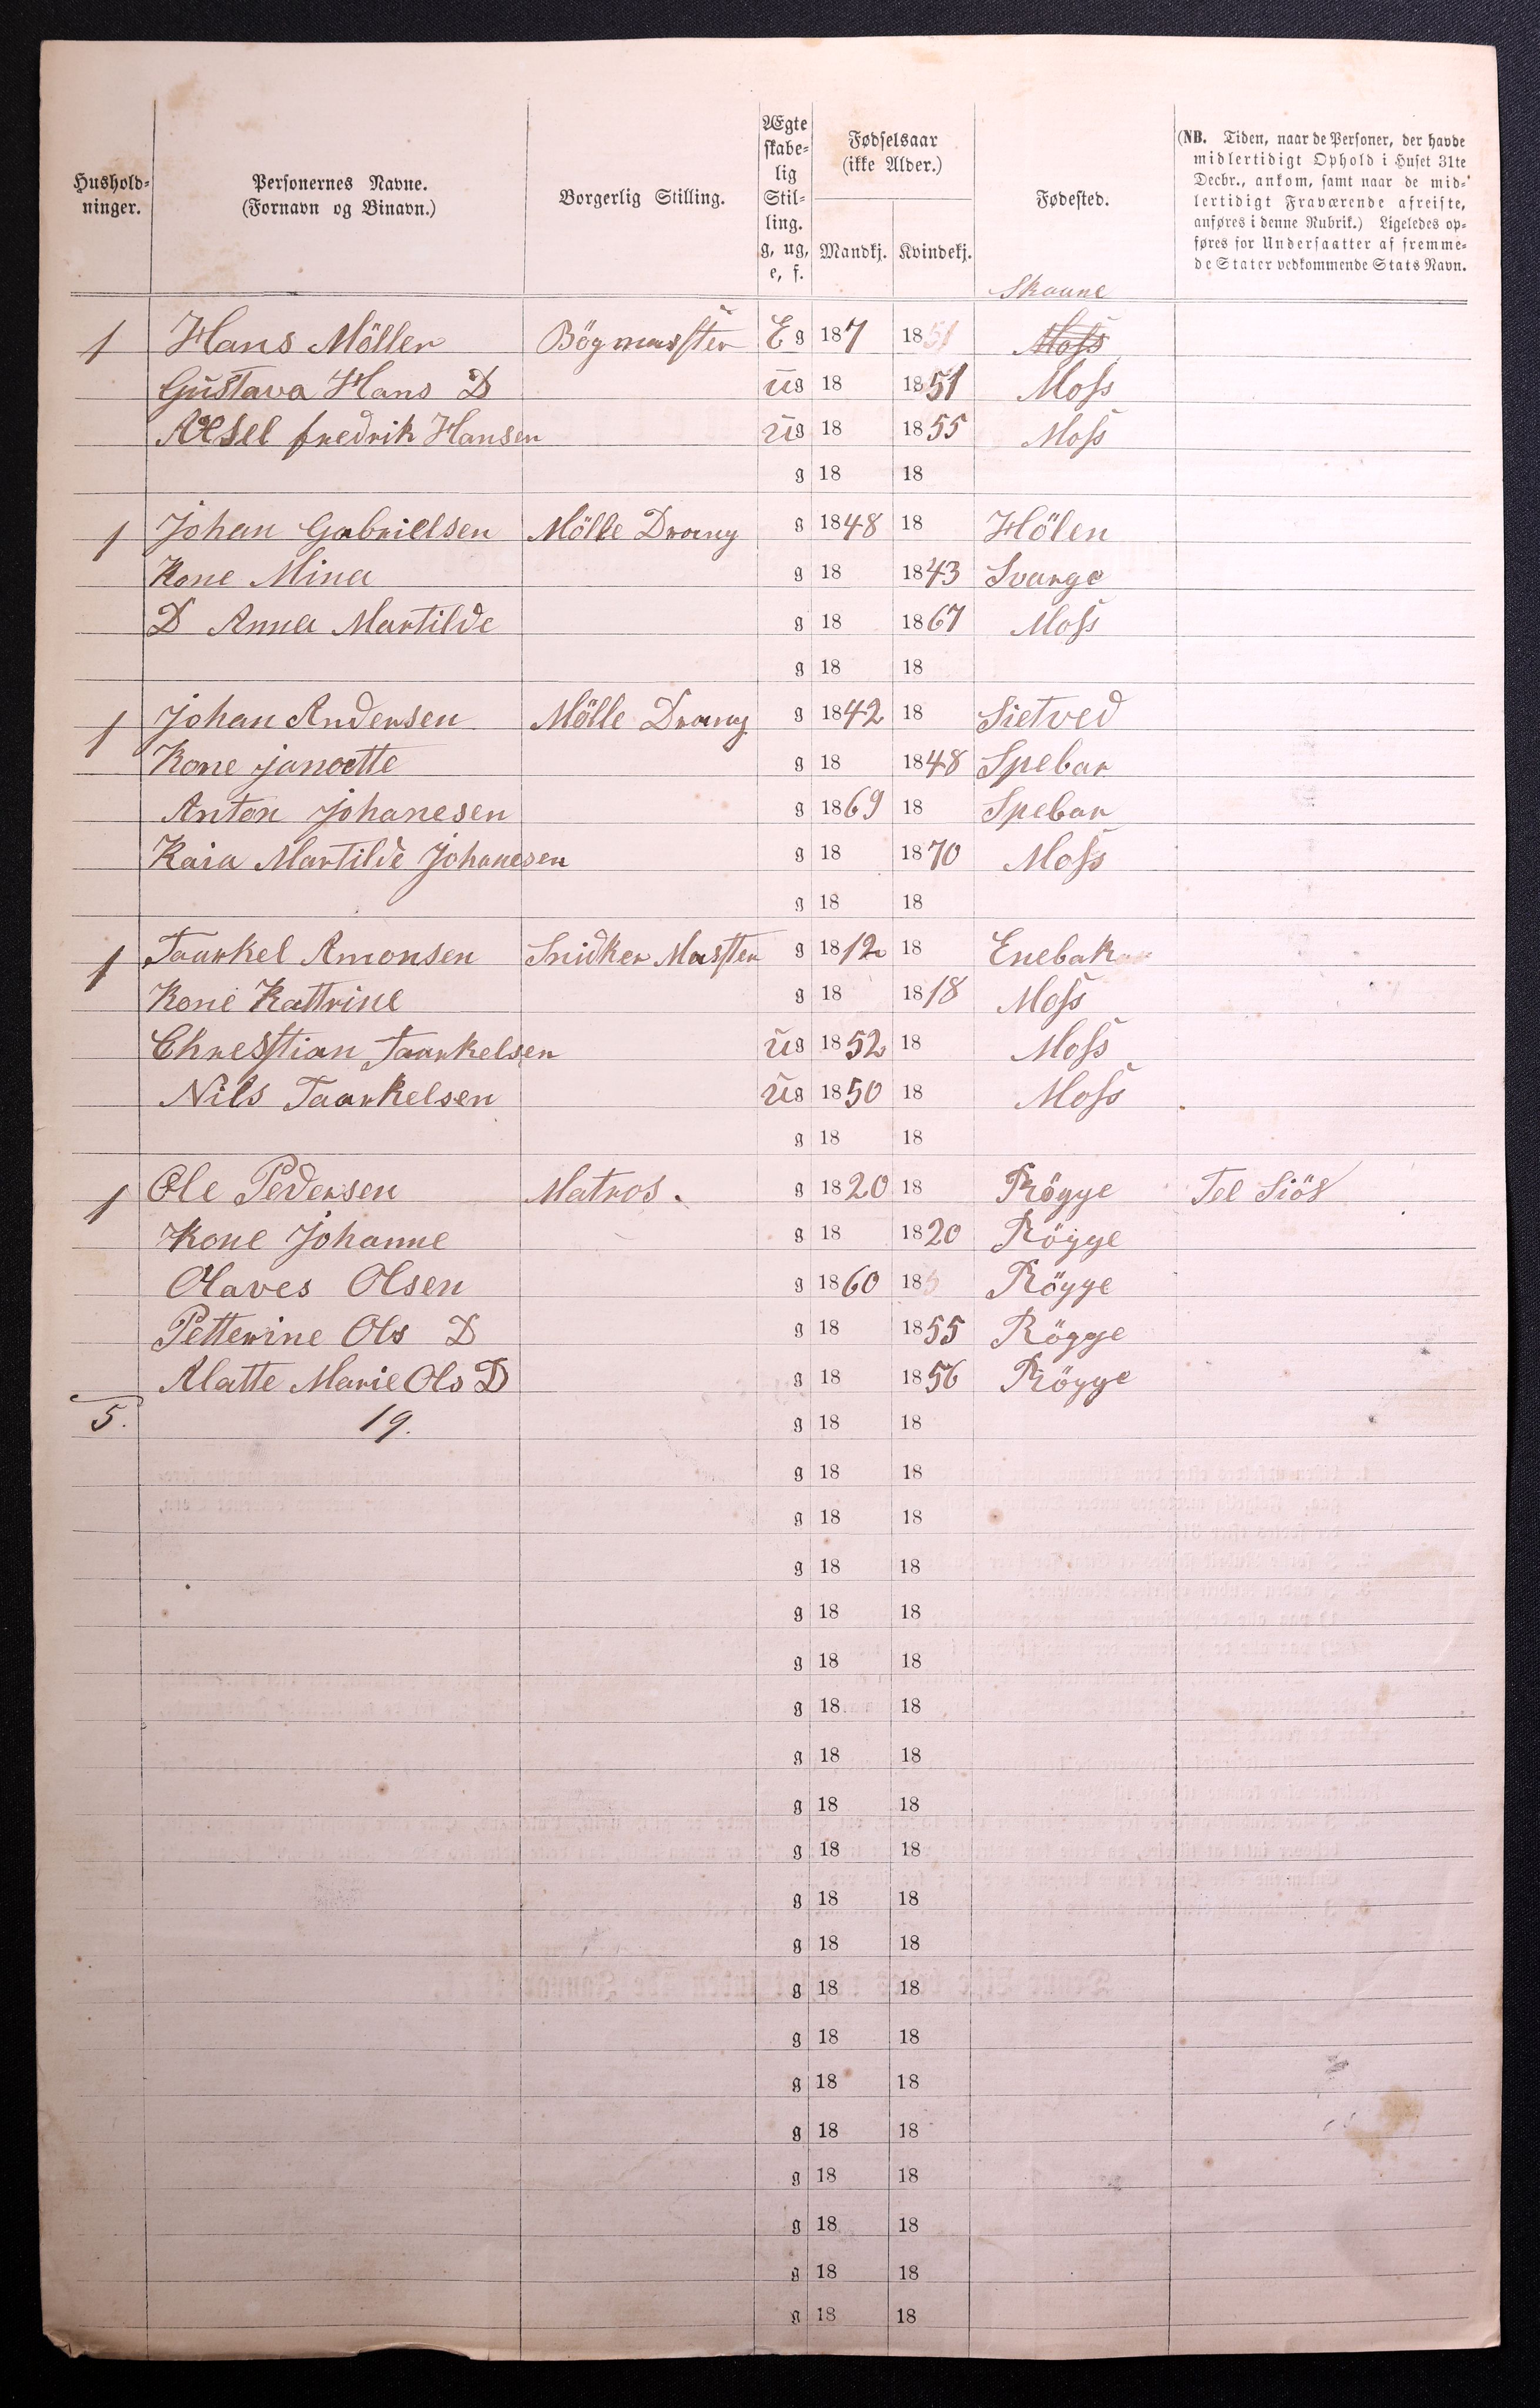 Hushold-
ninger.
Personernes Navne.
(Fornavn og Binavn.)
Borgerlig Stilling.
Ægte
skabe-
lig
Stil-
ling.
g, ug,
e, f.
Fødselsaar
(ikke Alder.)
Mandkj. Kvindekj.
Fødested.
(NB. Tiden, naar de Personer, der havde
midlertidigt Ophold i Huset 31te
Decbr., ankom, samt naar de mid-
lertidigt Fraværende afreiste,
anføres i denne Rubrik.) Ligeledes op-
føres for Undersaatter af fremme-
de Stater vedkommende Stats Navn.
Skaune
1 Hans Möller Bögmasster E g 187 1851 Moss
Gustava Hans D ug 18 1851 Moss
Aksel fredrik Hansen ug 18 1855 Moss
g 18 18
1 Johan Gabrielsen Mölle Dræng g 1848 18 Hölen
Kone Mina g 18 1843 Svarge
D Anna Martilde g 18 1867 Moss
g 18 18
1 Johan Andersen Mölle Dræng g 1842 18 Sietved
Kone janoette g 18 1848 Spebar
Anton Johanesen g 1869 18 Spebar
Kaia Martilde Johanesen g 18 1870 Moss
g 18 18
1 Taarkel Amonsen Snidker Masster g 1812 18 Enebak
Kone Kattrine g 18 1818 Moss
Chresstian Taarkelsen ug 1852 18 Moss
Nils Taarkelsen ug 1850 18 Moss
g 18 18
1 Ole Pedersen Matros. g 1820 18 Rögge Tel Siös
Kone Johanne g 18 1820 Rögge
Olaves Olsen g 1860 185 Rögge
Petterine Ols D g 18 1855 Rögge
Alatte Marie Ols D g 18 1856 Rögge
5. 19. g 18 18
g 18 18
g 18 18
g 18 18
g 18 18
g 18 18
g 18 18
g 18 18
g 18 18
g 18 18
g 18 18
g 18 18
g 18 18
g 18 18
g 18 18
g 18 18
g 18 18
g 18 18
g 18 18
g 18 18